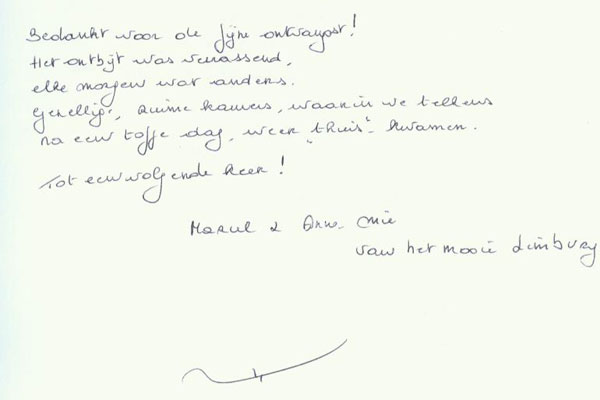 Bedankt voor de fijne ontvangst!
Het ontbijt was verrassend,
elke morgen wat anders.
Gezellige, ruime kamers, waarin we telkens
na een toffe dag, weer "thuis" kwamen.
Tot een volgende keer!
& Anne-Mie
van het mooie Limburg